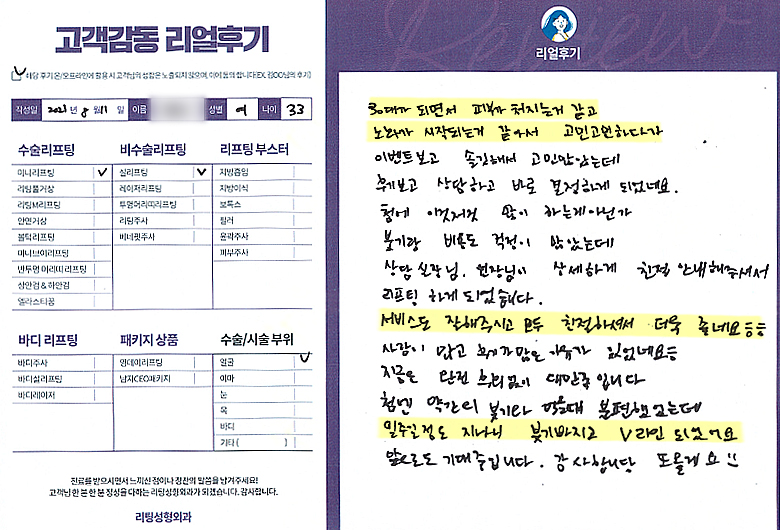 고객감동 리얼후기
해당 후기 온/오프라인에 활용 시 고객님의 성함은 노출되지 않으며, 이에 동의 합니다(EX. 김OO님의 후기)
작성일 2021년 8월 11일 이름 성별 여 나이 33
수술리프팅 비수술리프팅 리프팅 부스터
미니리프팅 실리프팅 지방흡입
리팅풀거상 레이저리프팅 지방이식
리팅M리프팅 투명머리띠리프팅 보톡스
안면거상 리팅주사 필러
볼턱리프팅 베네핏주사 윤곽주사
미니브이리프팅 피부주사
반투명 머리띠 리프팅
상안검 & 하안검
엘라스티꿈
바디 리프팅 패키지 상품 수술/시술 부위
바디주사 원데이리프팅 얼굴
바디실리프팅 남자CEO패키지 이마
바디레이저 눈
목
바디
기타 ( )
진료를 받으시면서 느끼신 점이나 칭찬의 말씀을 남겨주세요!
고객님 한 분 한 분 정성을 다하는 리팅성형외과가 되겠습니다. 감사합니다.
리팅성형외과
Review
리얼후기
30대가 되면서 피부가 처지는거 같고
노화가 시작되는거 같아서 고민고민하다가
이벤트보고 솔깃해서 고민만았는데
후기보고 상담하고 바로 결정하게 되었네요.
첨에 이것저것 많이 하는게 아닌가
붓기랑 비용도 걱정이 많았는데
상담실장님, 원장님이 상세하게 친절 안내해주셔서
리프팅 하게 되었습니다.
서비스도 잘해주시고 모두 친절하셔서 더욱 좋네요ㅎㅎ
사람이 많고 후기가 많은 이유가 있었네요ㅎ
지금은 완전 흐뭇없이 대만족입니다
첨엔 약간의 붓기라 먹을때 불편했었는데
일주일정도 지나니 붓기빠지고 V라인 되었어요
앞으로도 기대중입니다. 감사합니당 또올게요